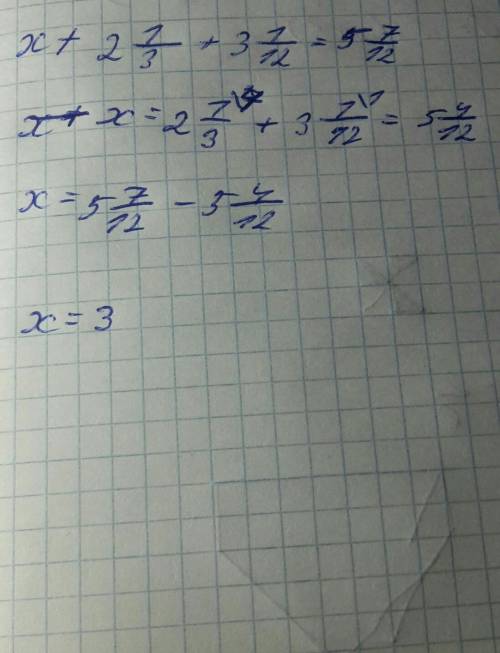 x + 2 1/3 + 3 1/12 = 5 7/12
x = 2 1/3 + 3 1\1/12 = 5 4/12
x = 5 7/12 - 5 4/12
x = 3